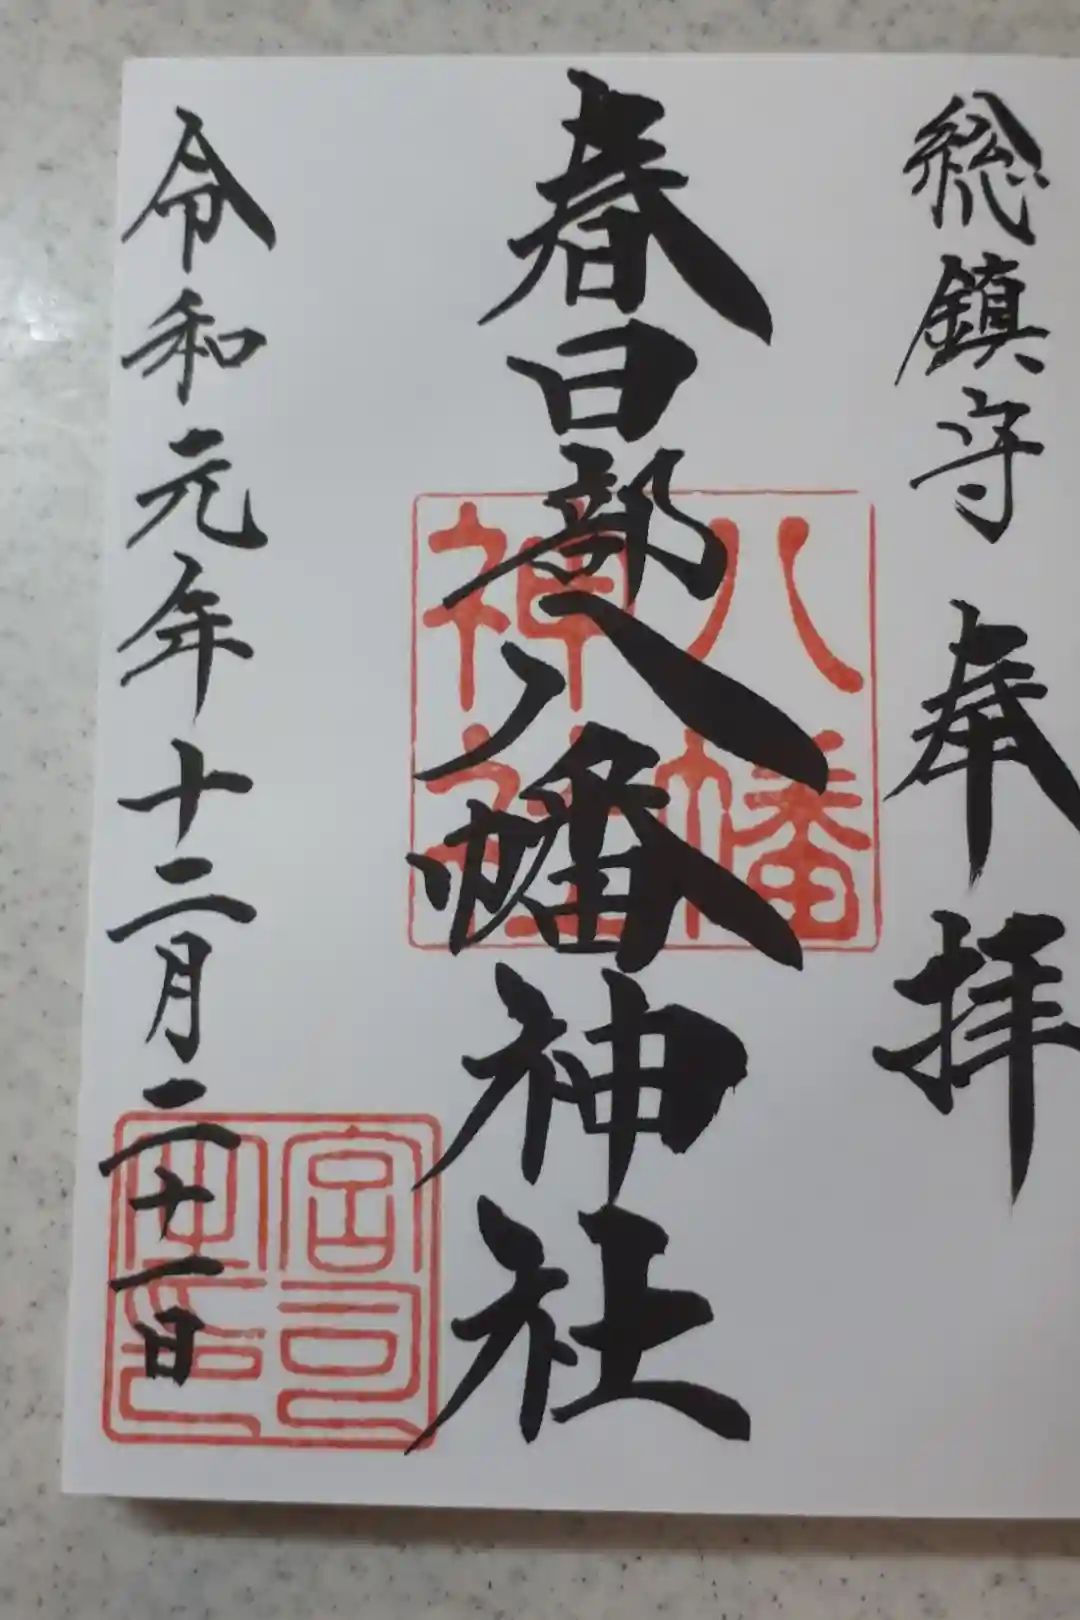 総鎮守 奉拝
春日部八幡神社
八幡
神社
令和元年十二月二十一日
宮司
之印